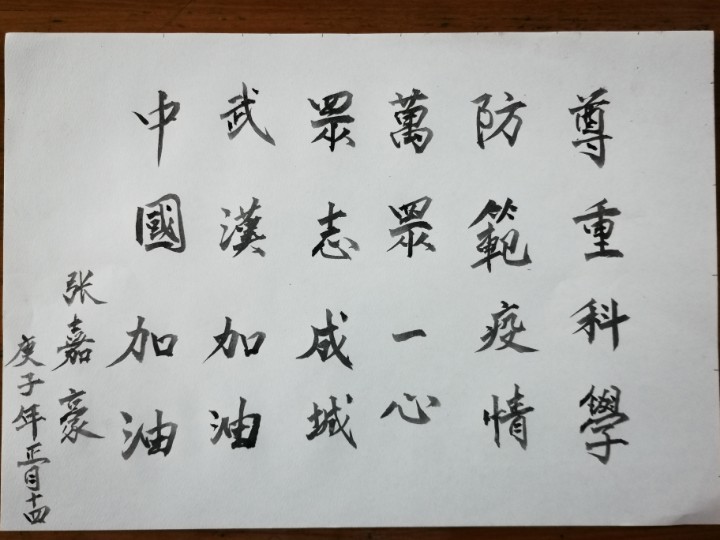 尊重科學
防範疫情
萬眾一心
眾志成城
武漢加油
中國加油
张嘉豪
庚子年正月十四